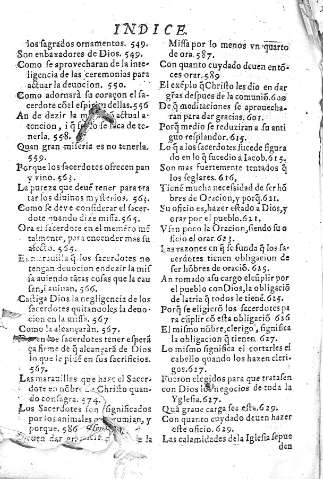 INDICE.
los sagrados ornamentos. 549.
Son enbaxadores de Dios. 549.
Como se aprovecharan de la inte-
ligencia de las ceremonias para
actuar la devocion. 550.
Como adornará su coraçon el sa-
cerdote cō el espiritu dellas. 556
An de dezir la actual a-
tencion, i q̃ se saca de te-
nerla. 558.
Quan gran miseria es no tenerla.
559.
Porque los sacerdotes ofrecen pan
y vino. 563.
La pureza que devē tener para tra-
tar los divinos mysterios. 563.
Como se deve considerar el sacer-
dote quando dize missa. 565.
Ora el sacerdote en el memēto mē
talmente, para encender mas su
afecto. 565.
Es maravilla q̃ los sacerdotes no
tengan devocion en dezir la mis-
sa aviendo tātas cosas que la cau
san, i avivan. 566.
Castiga Dios la negligencia de los
sacerdotes quitandoles la devo-
cion en la missa. 567
Como la alcançarán. 567.
los sacerdotes tener espera
ça firme de q̃ alcançará de Dios
lo que le pidē en sus sacrificios.
567.
Las maravillas que haze el Sacer-
dote en nōbre de Christo quan-
do consagra. 574.
Los Sacerdotes son significados
por los animales rumian, y
porque. 586
Missa por lo menos vn quarto
de ora. 587.
Con quanto cuydado deven entō-
ces orar. 589
El exēplo q̃ Christo les dio en dar
gras despues de la comuniō. 600
De q̃ meditaciones se aprovecha-
ran para dar gracias. 601.
Porq̃ medio se reduziran a su anti
guo resplandor. 615.
Lo q̃ a los sacerdotes sucede figura
do en lo q̃ sucedio a Iacob. 615.
Son mas fuertemente tentados q̃
los seglares. 616.
Tienē mucha necesidad de ser hō
bres de Oracion, y porq̃. 621.
Su oficio es, hazer estado a Dios, y
orar por el pueblo. 621.
Viven poco la Oracion, siendo su o
ficio el orar. 623.
Las razones en q̃ se funda q̃ los sa-
cerdotes tienen obligacion de
ser hōbres de oraciō. 625.
An tomado a su cargo el cūplir por
el pueblo con Dios, la obligaciō
de latria q̃ todos le tienē. 625.
Porq̃ se eligierō los sacerdotes pa
ra cūplir cō esta obligaciō 626
El mismo nōbre, clerigo, significa
la obligacion q̃ tienen. 627.
Lo mismo significa el cortarles el
cabello quando los hazen cleri-
gos. 627.
Fueron elegidos para que tratasen
con Dios los negocios de toda la
Yglesia. 627.
Quā grave carga sea esta. 629.
Con quanto cuydado deven hazer
este oficio. 629.
Las calamidades de la Iglesia se pue
den